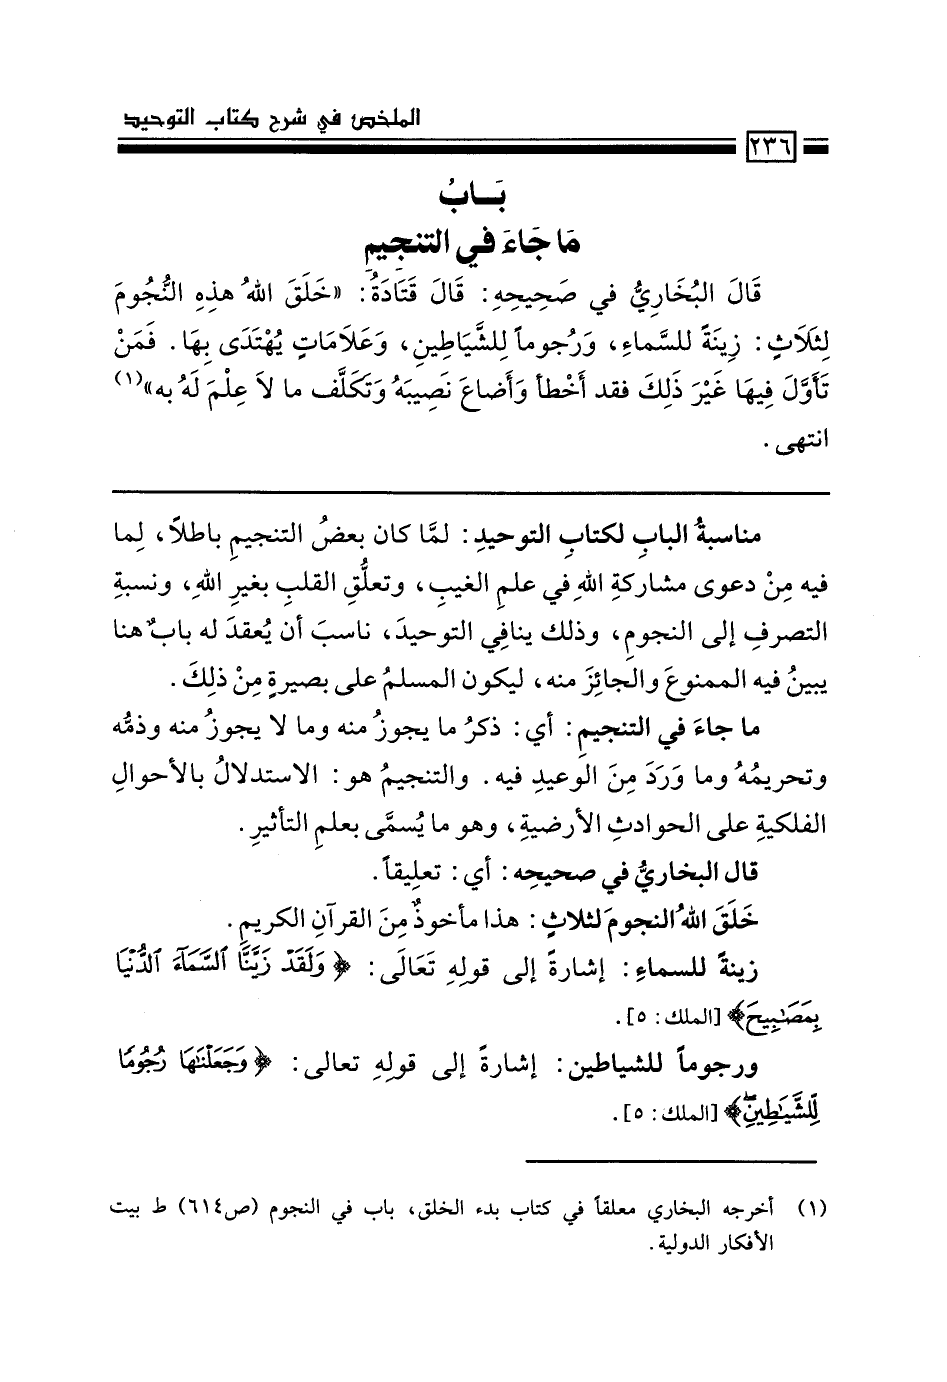 الملخص في شرح كتاب التوحيد
٢٣٦
بَـابُ
مَا جَاءَ في التنجيمِ
قَالَ البُخَارِيُّ في صَحِيحِهِ: قَالَ قَتَادَةُ: «خَلَقَ اللهُ هذِهِ النُّجُومَ
لِثَلَاثٍ: زِينَةً للسَّماءِ، وَرُجوماً لِلشَّيَاطِينِ، وَعَلَامَاتٍ يُهْتَدَى بِهَا. فَمَنْ
تَأَوَّلَ فِيهَا غَيْرَ ذَلِكَ فقد أَخْطأ وَأَضاعَ نَصِيبَهُ وَتَكَلَّف ما لاَ عِلْمَ لَهُ به»(١)
انتهى.
مناسبةُ البابِ لكتابِ التوحيدِ: لمَّا كان بعضُ التنجيمِ باطلاً، لِما
فيه مِنْ دعوى مشاركةِ اللهِ في علمِ الغيبِ، وتعلُّقِ القلبِ بغيرِ اللهِ، ونسبةِ
التصرفِ إلى النجومِ، وذلك ينافِي التوحيدَ، ناسبَ أن يُعقدَ له بابٌ هنا
يبينُ فيه الممنوعَ والجائِزَ منه، ليكون المسلمُ على بصيرةٍ مِنْ ذلِكَ.
ما جاءَ في التنجيمِ: أي: ذكرُ ما يجوزُ منه وما لا يجوزُ منه وذمُّه
وتحريمُهُ وما وَرَدَ مِنَ الوعيدِ فيه. والتنجيمُ هو: الاستدلالُ بالأحوالِ
الفلكيةِ على الحوادثِ الأرضيةِ، وهو ما يُسمَّى بعلمِ التأثيرِ.
قال البخاريُّ في صحيحِه: أي: تعلِيقاً.
خَلَقَ اللهُ النجومَ لثلاثٍ: هذا مأخوذٌ مِنَ القرآنِ الكريمِ.
زينةً للسماءِ: إشارةً إلى قولِهِ تَعَالَى: ﴿وَلَقَدْ زَيَّنَّا ٱلسَّمَآءَ ٱلدُّنْيَا
بِمَصَٰبِيحَ﴾ [الملك: ٥].
ورجوماً للشياطين: إشارةً إلى قولِهِ تعالى: ﴿وَجَعَلْنَٰهَا رُجُومًا
لِّلشَّيَٰطِينِۖ﴾ [الملك: ٥].
(١) أخرجه البخاري معلقاً في كتاب بدء الخلق، باب في النجوم (ص٦١٤) ط بيت
الأفكار الدولية.